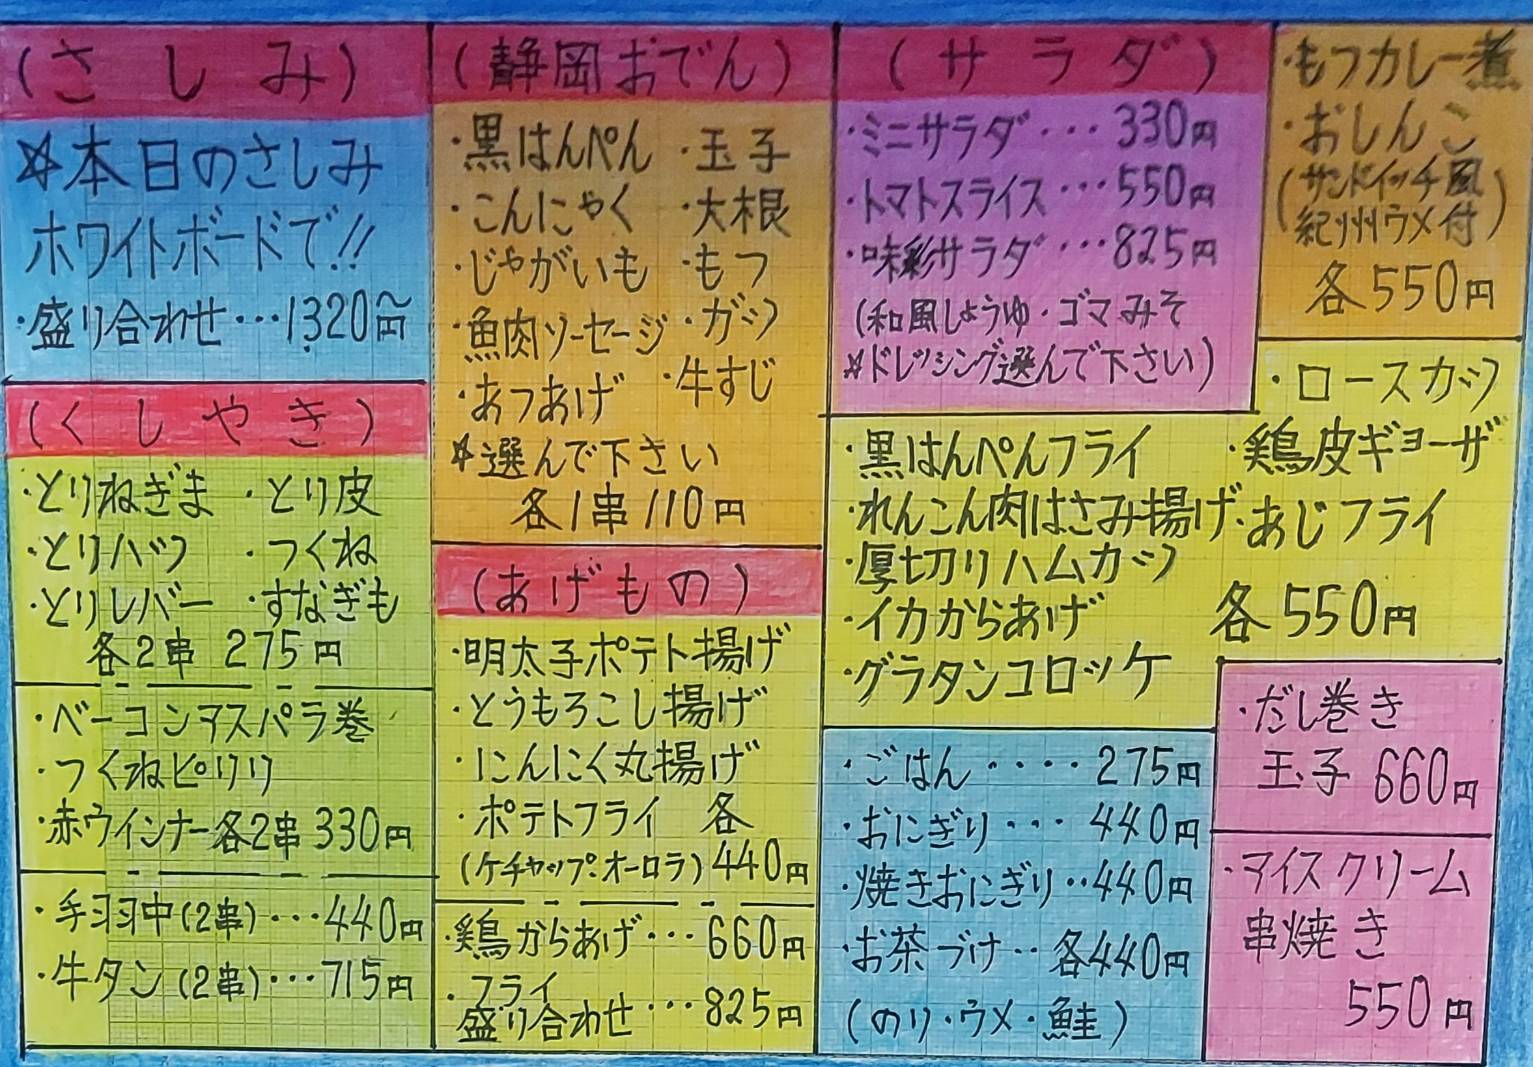 (さしみ)
☆本日のさしみ
ホワイトボードで!!
・盛り合わせ…1,320円〜
(くしやき)
・とりねぎま ・とり皮
・とりハツ ・つくね
・とりレバー ・すなぎも
各2串 275円
・ベーコンアスパラ巻
・つくねピリリ
・赤ウインナー各2串 330円
・手羽中(2串)…440円
・牛タン(2串)…715円
(静岡おでん)
・黒はんぺん ・玉子
・こんにゃく ・大根
・じゃがいも ・もつ
・魚肉ソーセージ ・ガツ
・あつあげ ・牛すじ
☆選んで下さい
各1串110円
(あげもの)
・明太子ポテト揚げ
・とうもろこし揚げ
・にんにく丸揚げ
・ポテトフライ 各
(ケチャップ・オーロラ)440円
・鶏からあげ…660円
・フライ
盛り合わせ…825円
(サラダ)
・ミニサラダ…330円
・トマトスライス…550円
・味彩サラダ…825円
(和風しょうゆ・ゴマみそ
☆ドレッシング選んで下さい)
・もつカレー煮
・おしんこ
(サンドイッチ風
紀州ウメ付)
各550円
・ロースカツ
・黒はんぺんフライ ・鶏皮ギョーザ
・れんこん肉はさみ揚げ・あじフライ
・厚切りハムカツ
・イカからあげ 各550円
・グラタンコロッケ
・ごはん・・・・275円
・おにぎり…440円
・焼きおにぎり‥440円
・お茶づけ‥各440円
(のり・ウメ・鮭)
・だし巻き
玉子 660円
・アイスクリーム
串焼き
550円